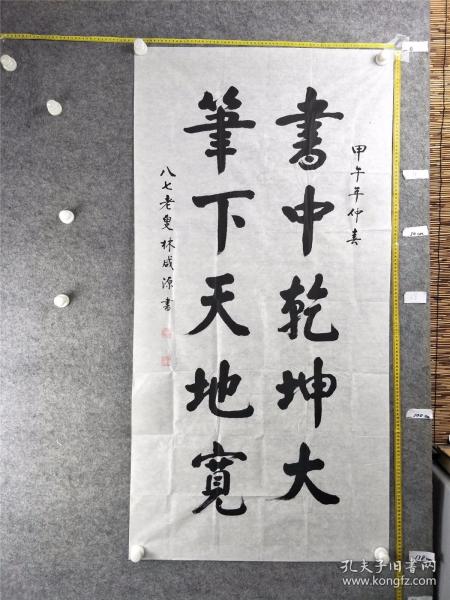 甲午年仲春
書中乾坤大
筆下天地寬
八七老叟林成源書
孔夫子旧书网
www.kongfz.com